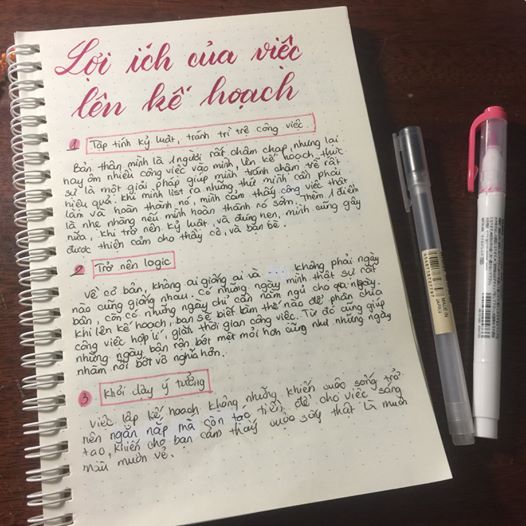 Lợi ích của việc
lên kế hoạch
1 Tập tính kỷ luật, tránh trì trệ công việc.
Bản thân mình là 1 người rất chậm chạp nhưng lại
hay ôm nhiều công việc vào mình, lên kế hoạch thực
sự là một giải pháp giúp mình tránh chậm trễ rất
hiệu quả. Khi mình list ra những thứ mình cần phải
làm và hoàn thành nó, mình cảm thấy công việc thật
là nhẹ nhàng nếu mình hoàn thành nó sớm. Thêm 1 điểm
nữa, khi trở nên kỷ luật, và đúng hẹn, mình cũng gây
được thiện cảm cho thầy cô, và bạn bè.
2 Trở nên logic
Về cơ bản, không ai giống ai và không phải ngày
nào cũng giống nhau. Có những ngày mình thật sự rất
bận, còn có những ngày chỉ cần nằm ngủ cho qua ngày.
Khi lên kế hoạch, bạn sẽ biết làm thế nào để phân chia
công việc hợp lí, giãn thời gian công việc. Từ đó cũng giúp
những ngày bận rộn bớt mệt mỏi hơn cũng như những ngày
nhàm rỗi bớt vô nghĩa hơn.
3 Khơi dậy ý tưởng
Việc lập kế hoạch không những khiến cuộc sống trở
nên ngăn nắp mà còn tạo tiền đề cho việc sáng
tạo, khiến cho bạn cảm thấy cuộc sống thật là muôn
màu muôn vẻ.
MADE IN
JAPAN